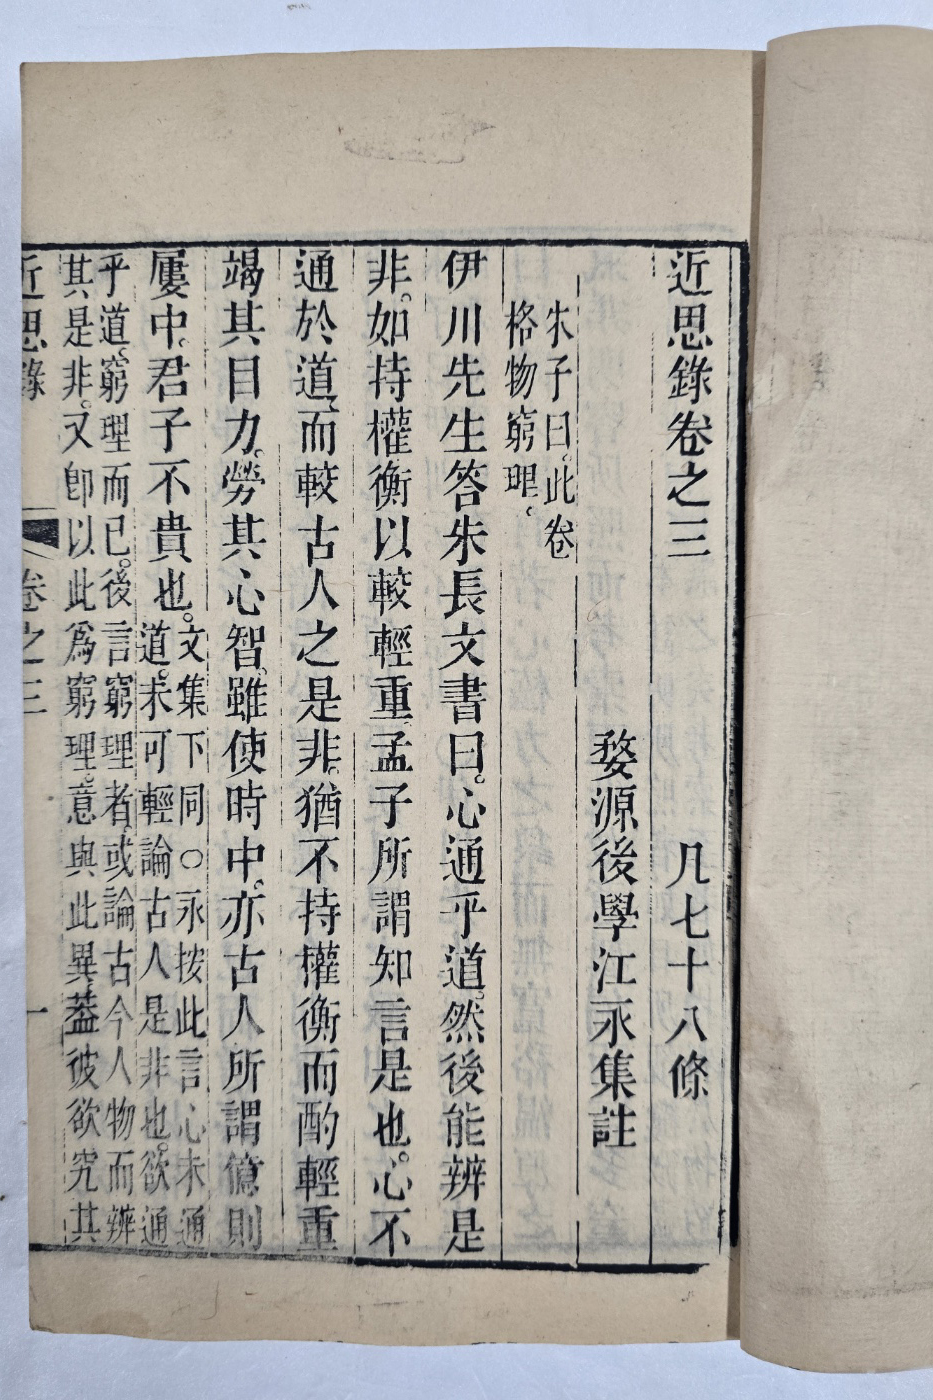 近思錄卷之三　凡七十八條
婺源後學江永集註
朱子曰。此卷
格物窮理。
伊川先生答朱長文書曰。心通乎道。然後能辨是
非。如持權衡以較輕重。孟子所謂知言是也。心不
通於道、而較古人之是非。猶不持權衡而酌輕重
竭其目力。勞其心智。雖使時中。亦古人所謂億則
屢中。君子不貴也。
文集下同〇永按此言心未通
道。未可輕論古人是非也。欲通
乎道、窮理而已。後言窮理者、或論古今人物而辨
其是非。又卽以此爲窮理。意與此異。葢彼欲究其
近思錄　卷之三　一